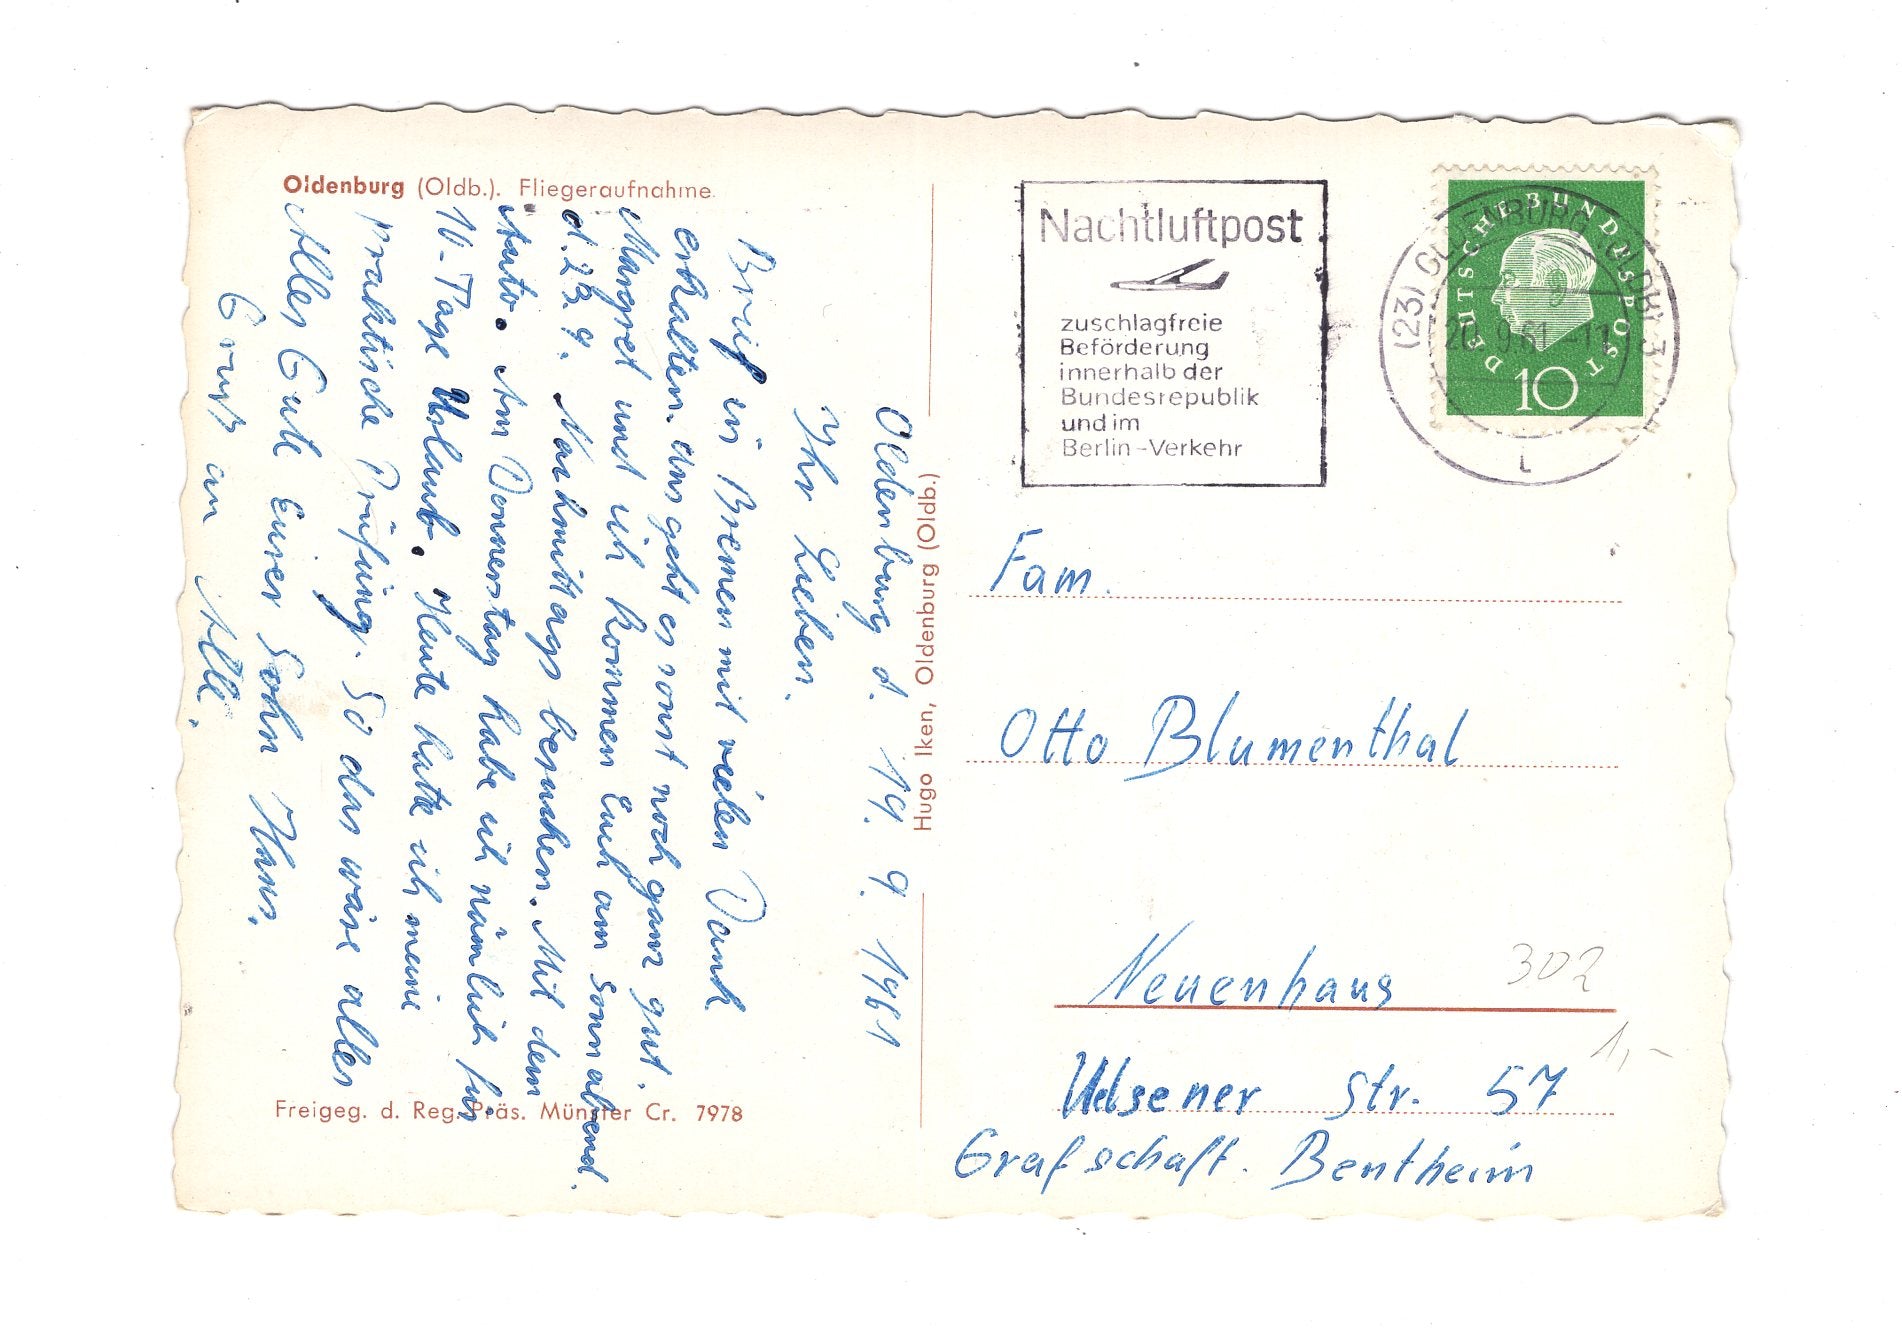 Oldenburg (Oldb.). Fliegeraufnahme
Oldenburg d. 19. 9. 1961
Ihr Lieben.
Brief in Bremen mit vielen Dank
erhalten. uns geht es sonst noch ganz gut.
Margret und ich kommen Euch am Sonnabend.
d. 23. 9. Nachmittags besuchen. Mit dem
Auto. Am Donnerstag habe ich nämlich für
10-Tage Urlaub. Heute hatte ich meine
praktische Prüfung. So das wäre alles
Alles Gute Eurer Sohn Hans.
Gruß an Alle.
Freigeg. d. Reg. Präs. Münster Cr. 7978
Hugo Iken, Oldenburg (Oldb.)
Nachtluftpost
zuschlagfreie
Beförderung
innerhalb der
Bundesrepublik
und im
Berlin-Verkehr
DEUTSCHE BUNDESPOST
10
(23) OLDENBURG (OLDB) 3
20.9.61-11
L
Fam.
Otto Blumenthal
Neuenhaus
302
1,-
Uelsener Str. 57
Grafschaft. Bentheim